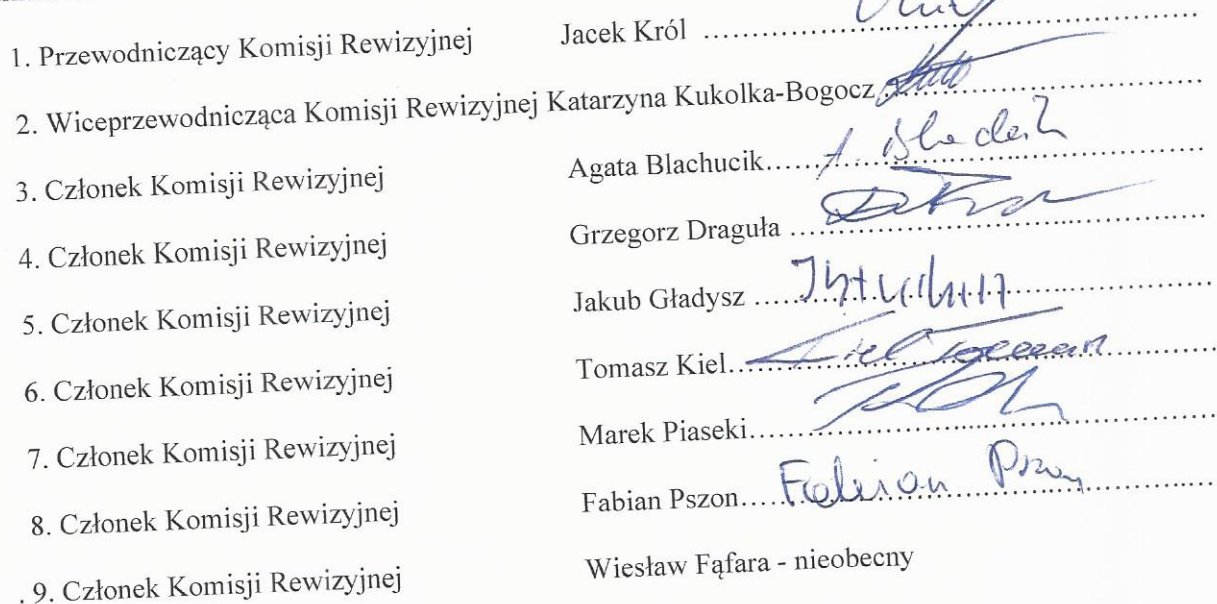 1. Przewodniczący Komisji Rewizyjnej Jacek Król ……………………………
2. Wiceprzewodnicząca Komisji Rewizyjnej Katarzyna Kukolka-Bogocz ……………………
3. Członek Komisji Rewizyjnej Agata Blachucik……………………………
4. Członek Komisji Rewizyjnej Grzegorz Draguła ……………………………
5. Członek Komisji Rewizyjnej Jakub Gładysz ……………………………
6. Członek Komisji Rewizyjnej Tomasz Kiel…… Kiel Tomasz ……………
7. Członek Komisji Rewizyjnej Marek Piaseki……………………………
8. Członek Komisji Rewizyjnej Fabian Pszon…… Fabian Pszon ……………
. 9. Członek Komisji Rewizyjnej Wiesław Fąfara - nieobecny